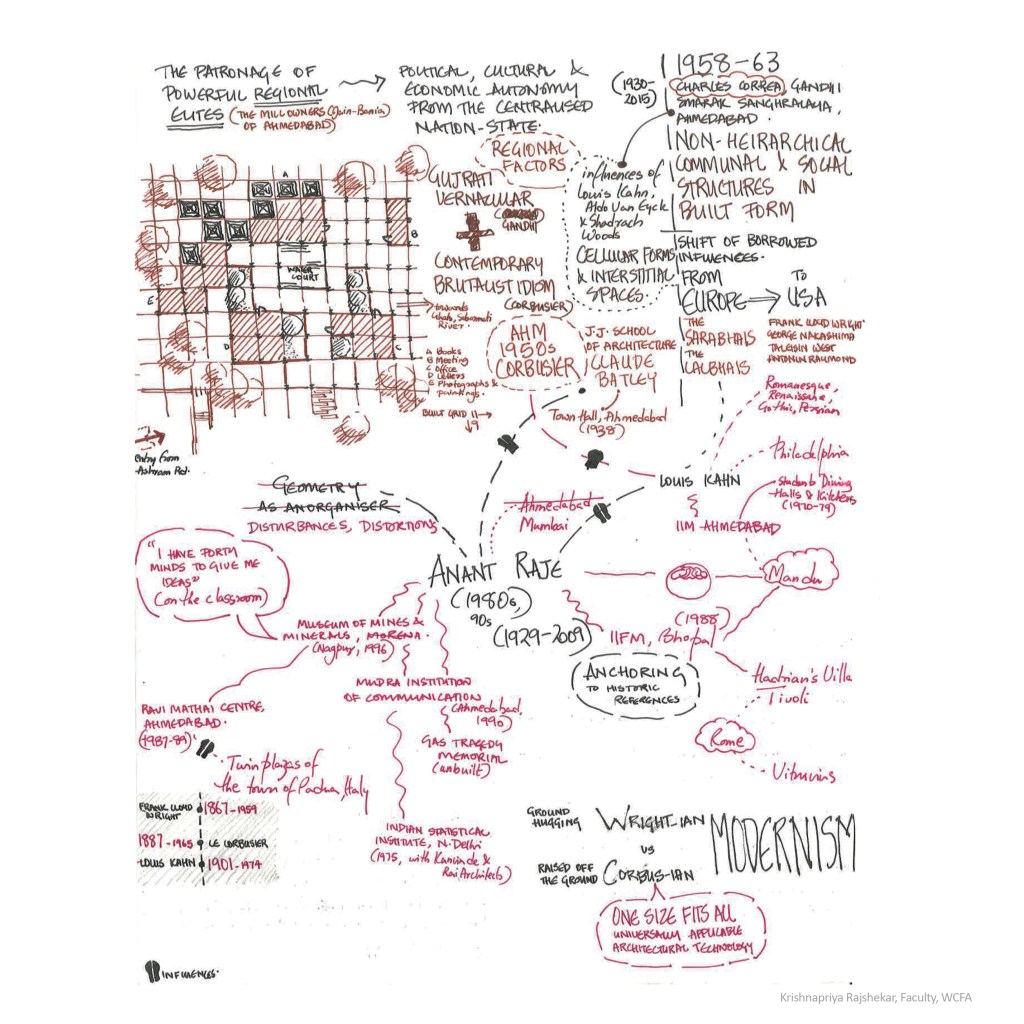 THE PATRONAGE OF
POWERFUL REGIONAL
ELITES (THE MILL OWNERS (Jain-Bania)
OF AHMEDABAD)
POLITICAL, CULTURAL &
ECONOMIC AUTONOMY
FROM THE CENTRALISED
NATION-STATE.
1958-63
(1930-
2015)
CHARLES CORREA, GANDHI
SMARAK SANGHRALAYA,
AHMEDABAD.
NON-HEIRARCHICAL
COMMUNAL & SOCIAL
STRUCTURES IN
BUILT FORM
REGIONAL
FACTORS
GUJRATI
VERNACULAR
GANDHI
+
CONTEMPORARY
BRUTALIST IDIOM
(CORBUSIER)
influences of
Louis Kahn,
Aldo Van Eyck
& Shadrach
Woods
CELLULAR FORMS
& INTERSTITIAL
SPACES.
SHIFT OF BORROWED
INFLUENCES.
FROM
EUROPE ⇒ TO
USA
THE
SARABHAIS
THE
LALBHAIS
FRANK LLOYD WRIGHT
GEORGE NAKASHIMA
TALEISIN WEST
ANTONIN RAYMOND
A
B
C
D
E
WATER
COURT
Sabarmati
River
A Books
B Meeting
C Office
D Letters
E Photographs &
paintings.
BUILT GRID 11→
↓9
Entry from
Ashram Rd.
AHM
1950s
CORBUSIER
J.J. SCHOOL
OF ARCHITECTURE
CLAUDE
BATLEY
Town Hall, Ahmedabad
(1938)
Romanesque,
Renaissance,
Gothic, Persian
LOUIS KAHN
Philadelphia
Students Dining
Halls & Kitchens
(1970-79)
IIM-AHMEDABAD
GEOMETRY
AS AN ORGANISER
DISTURBANCES, DISTORTIONS
Ahmedabad
Mumbai
"I HAVE FORTY
MINDS TO GIVE ME
IDEAS"
(on the classroom)
ANANT RAJE
(1980s,
90s
(1929-2009)
Mandu
MUSEUM OF MINES &
MINERALS, MORENA.
(Nagpur, 1996)
(1988)
IIFM, Bhopal
ANCHORING
TO HISTORIC
REFERENCES
Hadrian's Villa
Tivoli
Rome
Vitruvius
MUDRA INSTITUTION
OF COMMUNICATION
(Ahmedabad,
1990)
GAS TRAGEDY
MEMORIAL
(unbuilt)
RAVI MATHAI CENTRE,
AHMEDABAD.
(1987-89)
Twin plazas of
the town of Padua, Italy
FRANK LLOYD
WRIGHT 1867-1959
1887-1965 LE CORBUSIER
LOUIS KAHN 1901-1974
INDIAN STATISTICAL
INSTITUTE, N. Delhi
(1975, with Kanvinde &
Rai Architects)
GROUND
HUGGING
WRIGHT-IAN
VS
RAISED OFF
THE GROUND
CORBUS-IAN
MODERNISM
ONE SIZE FITS ALL
UNIVERSALLY APPLICABLE
ARCHITECTURAL TECHNOLOGY
INFLUENCES.
Krishnapriya Rajshekar, Faculty, WCFA